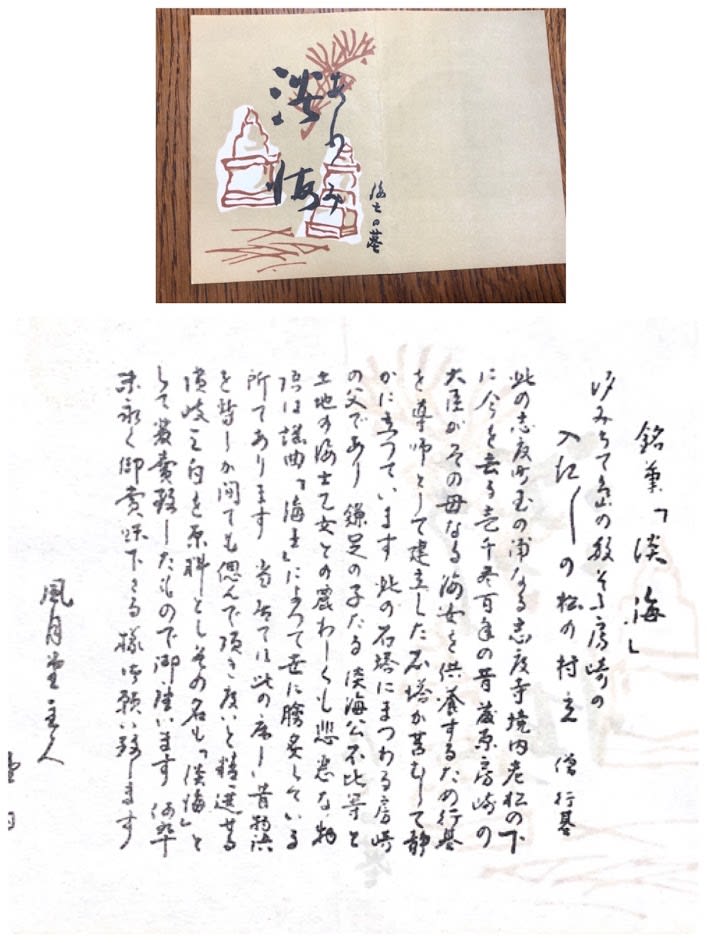 淡海
海士の墓
銘菓「淡海」
汐みちて島の数そふ房崎の
入江〱の松の村立 僧行基
此の志度町玉の浦なる志度寺境内老松の下
に今を去る壱千弐百年の昔藤原房崎の
大臣がその母なる海女を供養するため行基
を導師として建立した石塔が苔むして静
かに立っています 此の石塔にまつわる房崎
の父であり 鎌足の子たる 淡海公不比等と
土地の海士乙女との麗わしくも悲恋な物
語は謡曲「海士」によって世に膾炙している
所であります 当店では此の床しい昔物語
を暫しが間でも偲んで頂き度いと精選せる
讃岐三白を原料としその名も「淡海」と
して発売致したもので御座います 何卒
末永く御賞味下さる様御願い致します
風月堂主人